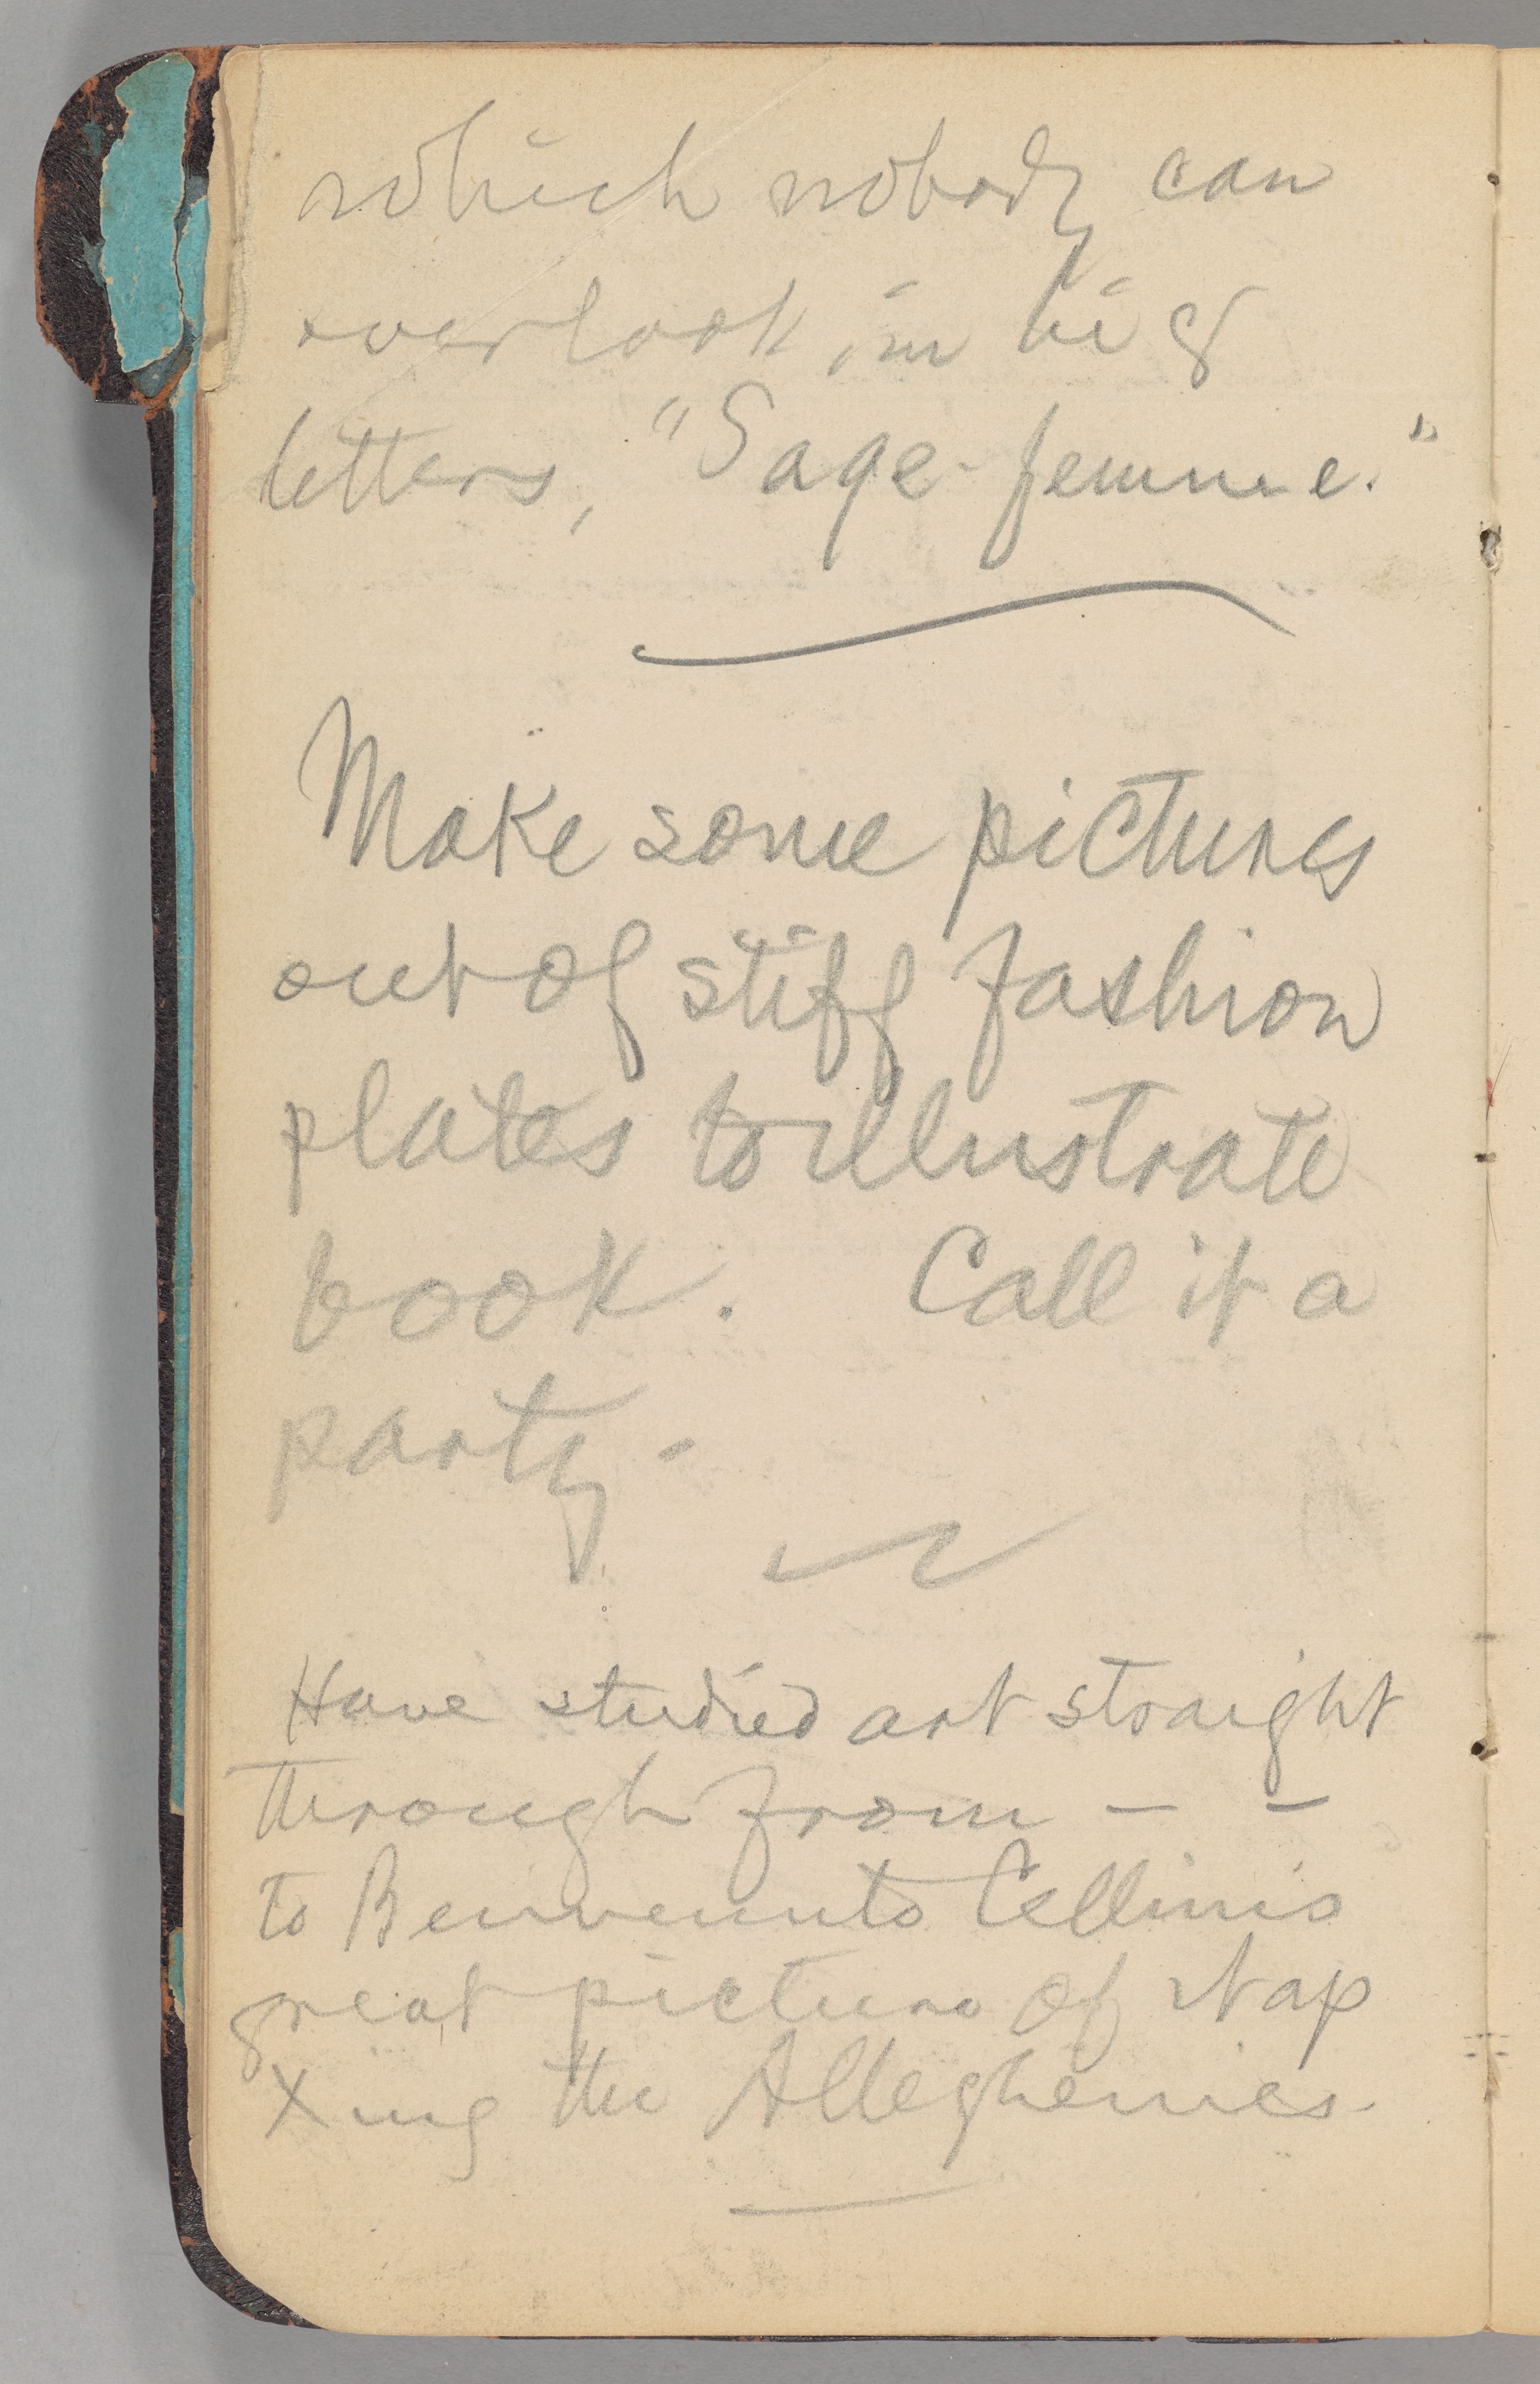 which nobody can
overlook, in big
letters, "Sage-femme."
Make some pictures
out of stiff fashion
plates to illustrate
book. Call it a
party -
Have studied art straight
through from — —
to Benvenuto Cellini's
great picture of Nap
Xing the Alleghenies.